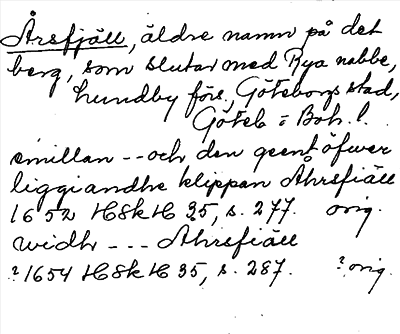 Årsfjäll, äldre namn på det
berg, som slutar med Rya nabbe,
Lundby förs., Göteborgs stad,
Göteb o Boh. l.
emillan -- och den geent öfwer
liggiandhe klippan Åhrsfiäll
1652 HSkH 35, s. 277. orig.
widh --- Åhrsfiäll
? 1654 HSkH 35, s. 287. ? orig.